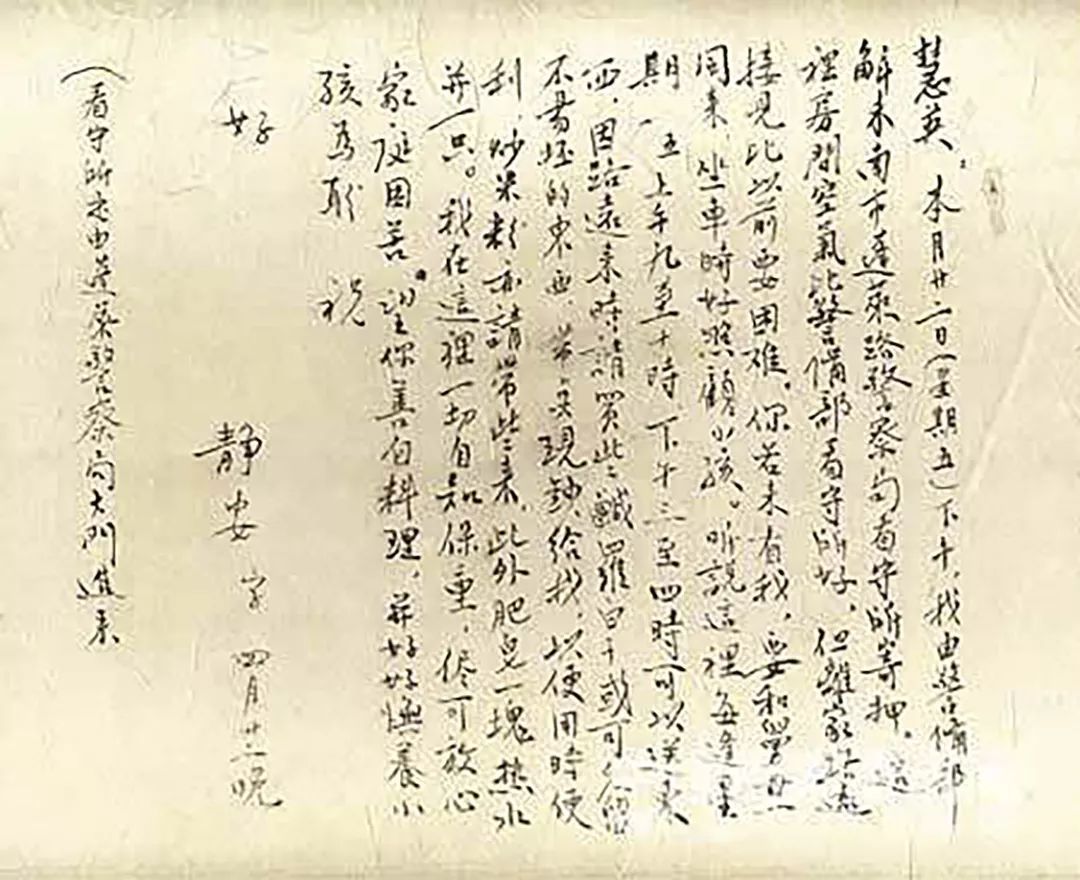 慧英：本月廿二日（星期五）下午，我由警備部
解来南市蓬萊路警察局看守所寄押。這
裡房間空氣比警備部看守所好，但離家路遠
接見比以前要困難。你若来看我，要和學世
同来，坐車時好照顧小孩。听説這裡每逢星
期一五上午九至十時下午三至四時可以送東
西，因路遠来時請買些鹹羅白干或可久留
不易坯的東西，带兵現鈔给我，以便用時便
利，炒米粉亦請带些来，此外肥皂一塊热水
并一只。我在這裡一切自知保重，侭可放心
家庭困苦，望你善自料理，并好好撫養小
孩為盼 祝
好
静安字 四月廿二晚
（看守所是由蓬萊警察局大門進来